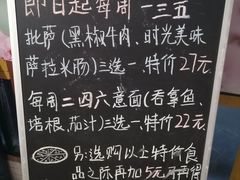 即日起每周一三五
批萨(黑椒牛肉、时光美味
萨拉米肠)三选一.特价27元.
每周二四六意面(吞拿鱼、
培根、茄汁)三选一.特价22元.
另:选购以上特价食
品之际再加5元可再得